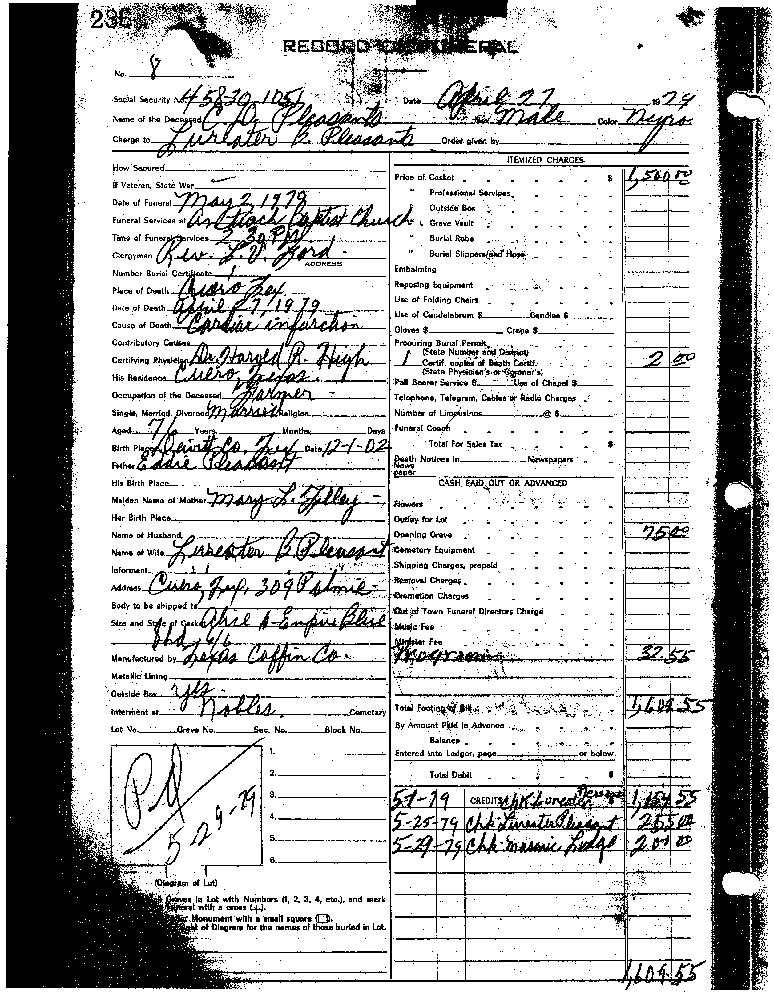 RECORD OF FUNERAL
No. 8
Social Security No.
Date April 27 1979
Name of the Deceased C. D. Pleasants Male Color Negro
Charge to Lureater B. Pleasants Order given by
How Secured
If Veteran, State War
Date of Funeral May 2, 1979
Funeral Services at Antioch Baptist Church
Time of Funeral Services 2:30 PM
Clergyman Rev. L. V. Ford
ADDRESS
Number Burial Certificate 1
Place of Death Cuero Tex
Date of Death April 27, 1979
Cause of Death Cardiac infarction
Contributory Causes
Certifying Physician Dr. Harold R. High
His Residence Cuero, Texas.
Occupation of the Deceased Farmer
Single, Married, Divorced Married Religion
Aged 76 Years Months Days
Birth Place Dewitt Co. Tex Date 12-1-02
Father Eddie Pleasant
His Birth Place
Maiden Name of Mother Mary L.
Her Birth Place
Name of Husband
Name of Wife Lureater B. Pleasant
Informant
Address Cuero, Tex. 309
Body to be shipped to
Size and Style of Casket Empire Blue
6/6
Manufactured by Texas Coffin Co.
Metallic Lining
Outside Box yes
Interment at Nobles Cemetary
Lot No. Grave No. Sec. No. Block No.
Pd
5-29-79
1.
2.
3.
4.
5.
6.
(Diagram of Lot)
Graves in Lot with Numbers (1, 2, 3, 4, etc.), and mark
Funeral with a cross (+).
Monument with a small square
of Diagram for the names of those buried in Lot.
ITEMIZED CHARGES
Price of Casket $ 1,500.00
" Professional Services
" Outside Box
" Grave Vault
" Burial Robe
" Burial Slippers and Hose
Embalming
Reposing Equipment
Use of Folding Chairs
Use of Candelabrum $ Candles $
Gloves $ Crepe $
Procuring Burial Permit
(State Number and District)
1 Certif. copies of Death Certif. 2 00
(State Physician's or Coroner's)
Pall Bearer Service $ Use of Chapel $
Telephone, Telegram, Cables or Radio Charges
Number of Limousines @ $
Funeral Coach
Total For Sales Tax $
Death Notices in Newspapers
News
paper
CASH PAID OUT OR ADVANCED
Flowers
Outlay for Lot
Opening Grave 75 00
Cemetary Equipment
Shipping Charges, prepaid
Removal Charges
Cremation Charges
Out of Town Funeral Directors Charge
Music Fee
Minister Fee
Program 32.55
Total Footing of Bill 1,609.55
By Amount Paid in Advance
Balance
Entered into Ledger, page or below.
Total Debit $
CREDITS
5-25-79 Chk Lureater Pleasant 255 00
5-29-79 Chk. Masonic Lodge 200 00
1,609.55